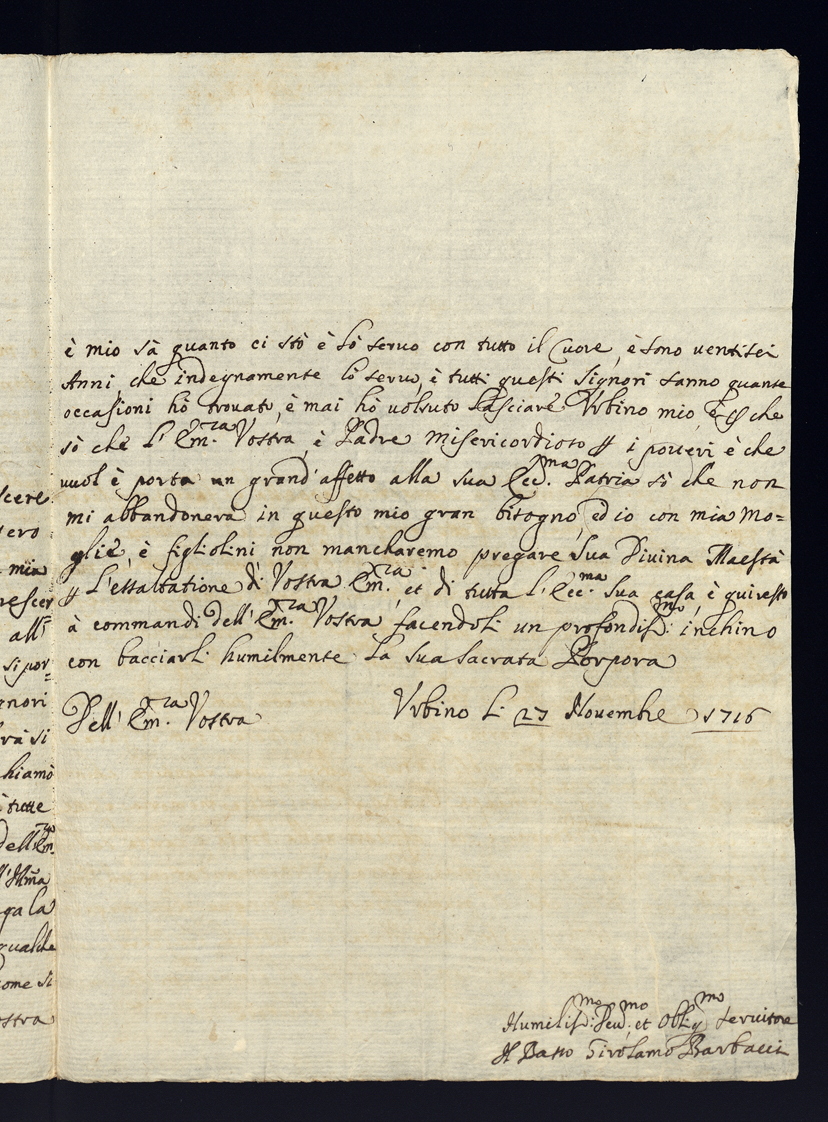 scere
vero
mia
rescer
all'
si por=
gnori
rà si
hiamò
è tutte
dell'Em.
ll'Illma
ga la
qualche
come si
ostra
è mio sà quanto ci stò è lò seruo con tutto il Cuore, è sono uentisei
Anni che indegnamente lò seruo, è tutti questi Signori sanno quante
occasioni hò trouato, è mai hò uolsuto Lasciare Vrbino mio, è che
sò che L'Em.za Vostra è Padre misericordioso i poueri è che
uuol è porta un grand'affetto alla sua Ecc.ma Patria sò che non
mi abbandonerà in questo mio gran bisogno, ed io con mia Mo=
glie, è figliolini non mancharemo pregare Sua Diuina Maestà
L'essaltatione di Vostra Em.za, et di tutta L'Ecc.ma Sua casa, è qui resto
à commandi dell'Em.za Vostra facendoli un profondiss.mo inchino
con bacciarli humilmente la sua sacrata Porpora
Dell'Em.za Vostra Vrbino li 27 Nouembre 1716
Humiliss.mo Deu.mo et Obblig.mo Seruitore
Il Basso Girolamo Barbacci